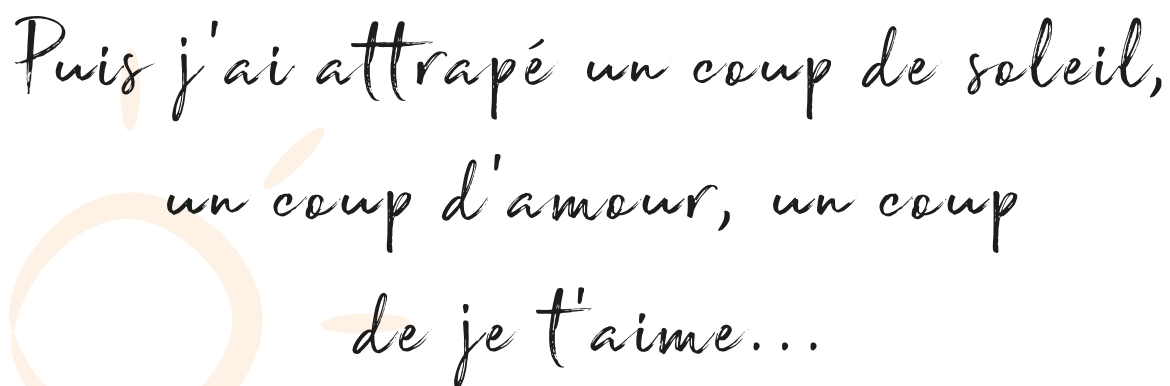 Puis j'ai attrapé un coup de soleil,
un coup d'amour, un coup
de je t'aime...